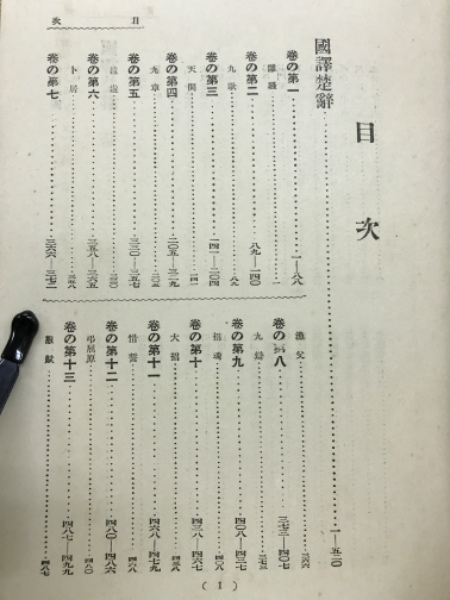 目次
目次
國譯楚辭……一―五二〇
卷の第一……一―八八
離騷……一
卷の第二……八九―一四〇
九歌……八九
卷の第三……一四一―二〇四
天問……一四一
卷の第四……二〇五―三二九
九章……二〇五
卷の第五……三三〇―三五七
遠遊……三三〇
卷の第六……三五八―三六五
卜居……三五八
卷の第七……三六六―三七二
漁父……三六六
卷の第八……三七三―四〇七
九辯……三七三
卷の第九……四〇八―四三七
招魂……四〇八
卷の第十……四三八―四六七
大招……四三八
卷の第十一……四六八―四七九
惜誓……四六八
卷の第十二……四八〇―四八六
弔屈原……四八〇
卷の第十三……四八七―四九九
服賦……四八七
( 1 )